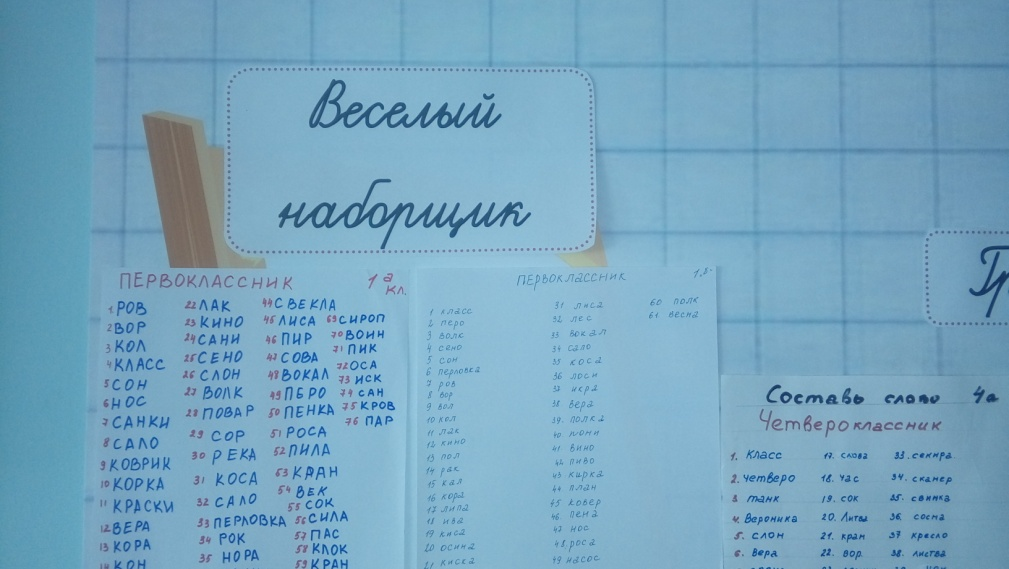 Веселый
наборщик
ПЕРВОКЛАССНИК 1а кл.
1 РОВ
2 ВОР
3 КОЛ
4 КЛАСС
5 СОН
6 НОС
7 САНКИ
8 САЛО
9 КОВРИК
10 КОРКА
11 КРАСКИ
12 ВЕРА
13 КОРА
14 КОН
22 ЛАК
23 КИНО
24 САНИ
25 СЕНО
26 СЛОН
27 ВОЛК
28 ПОВАР
29 СОР
30 РЕКА
31 КОСА
32 САЛО
33 ПЕРЛОВКА
34 РОК
35 НОРА
44 СВЕКЛА
45 ЛИСА
46 ПИР
47 СОВА
48 ВОКАЛ
49 ПЕРО
50 ПЕНКА
51 РОСА
52 ПИЛА
53 КРАН
54 ВЕК
55 СОК
56 СИЛА
57 ПАС
58 КЛОК
59 КРАН
69 СИРОП
70 ВОИН
71 ПИК
72 ОСА
73 ИСК
74 САН
75 КРОВ
76 ПАР
ПЕРВОКЛАССНИК
1 класс
2 перо
3 волк
4 сено
5 сон
6 перловка
7 ров
8 вор
9 вол
10 кол
11 лак
12 кино
13 пол
14 рак
15 кал
16 кора
17 липа
18 ива
19 киса
20 осина
21 киска
31. лиса
32 лес
33 вокал
34 сало
35 коса
36 лоси
37 икра
38 вера
39. полка
40 пони
41 вино
42 пиво
43 кирка
44 план
45 ковер
46. пена
47 нос
48. роса
49 насос
60 полк
61. весна
Составь слово 4а
Четвероклассник
1. класс
2. четверо
3 танк
4. Вероника
5. слон
6. вера
17. слова
18. час
19. сок
20. Литва
21. кран
22. вор
33. секира
34. сканер
35. свинка
36 сосна
37 кресло
38. листва